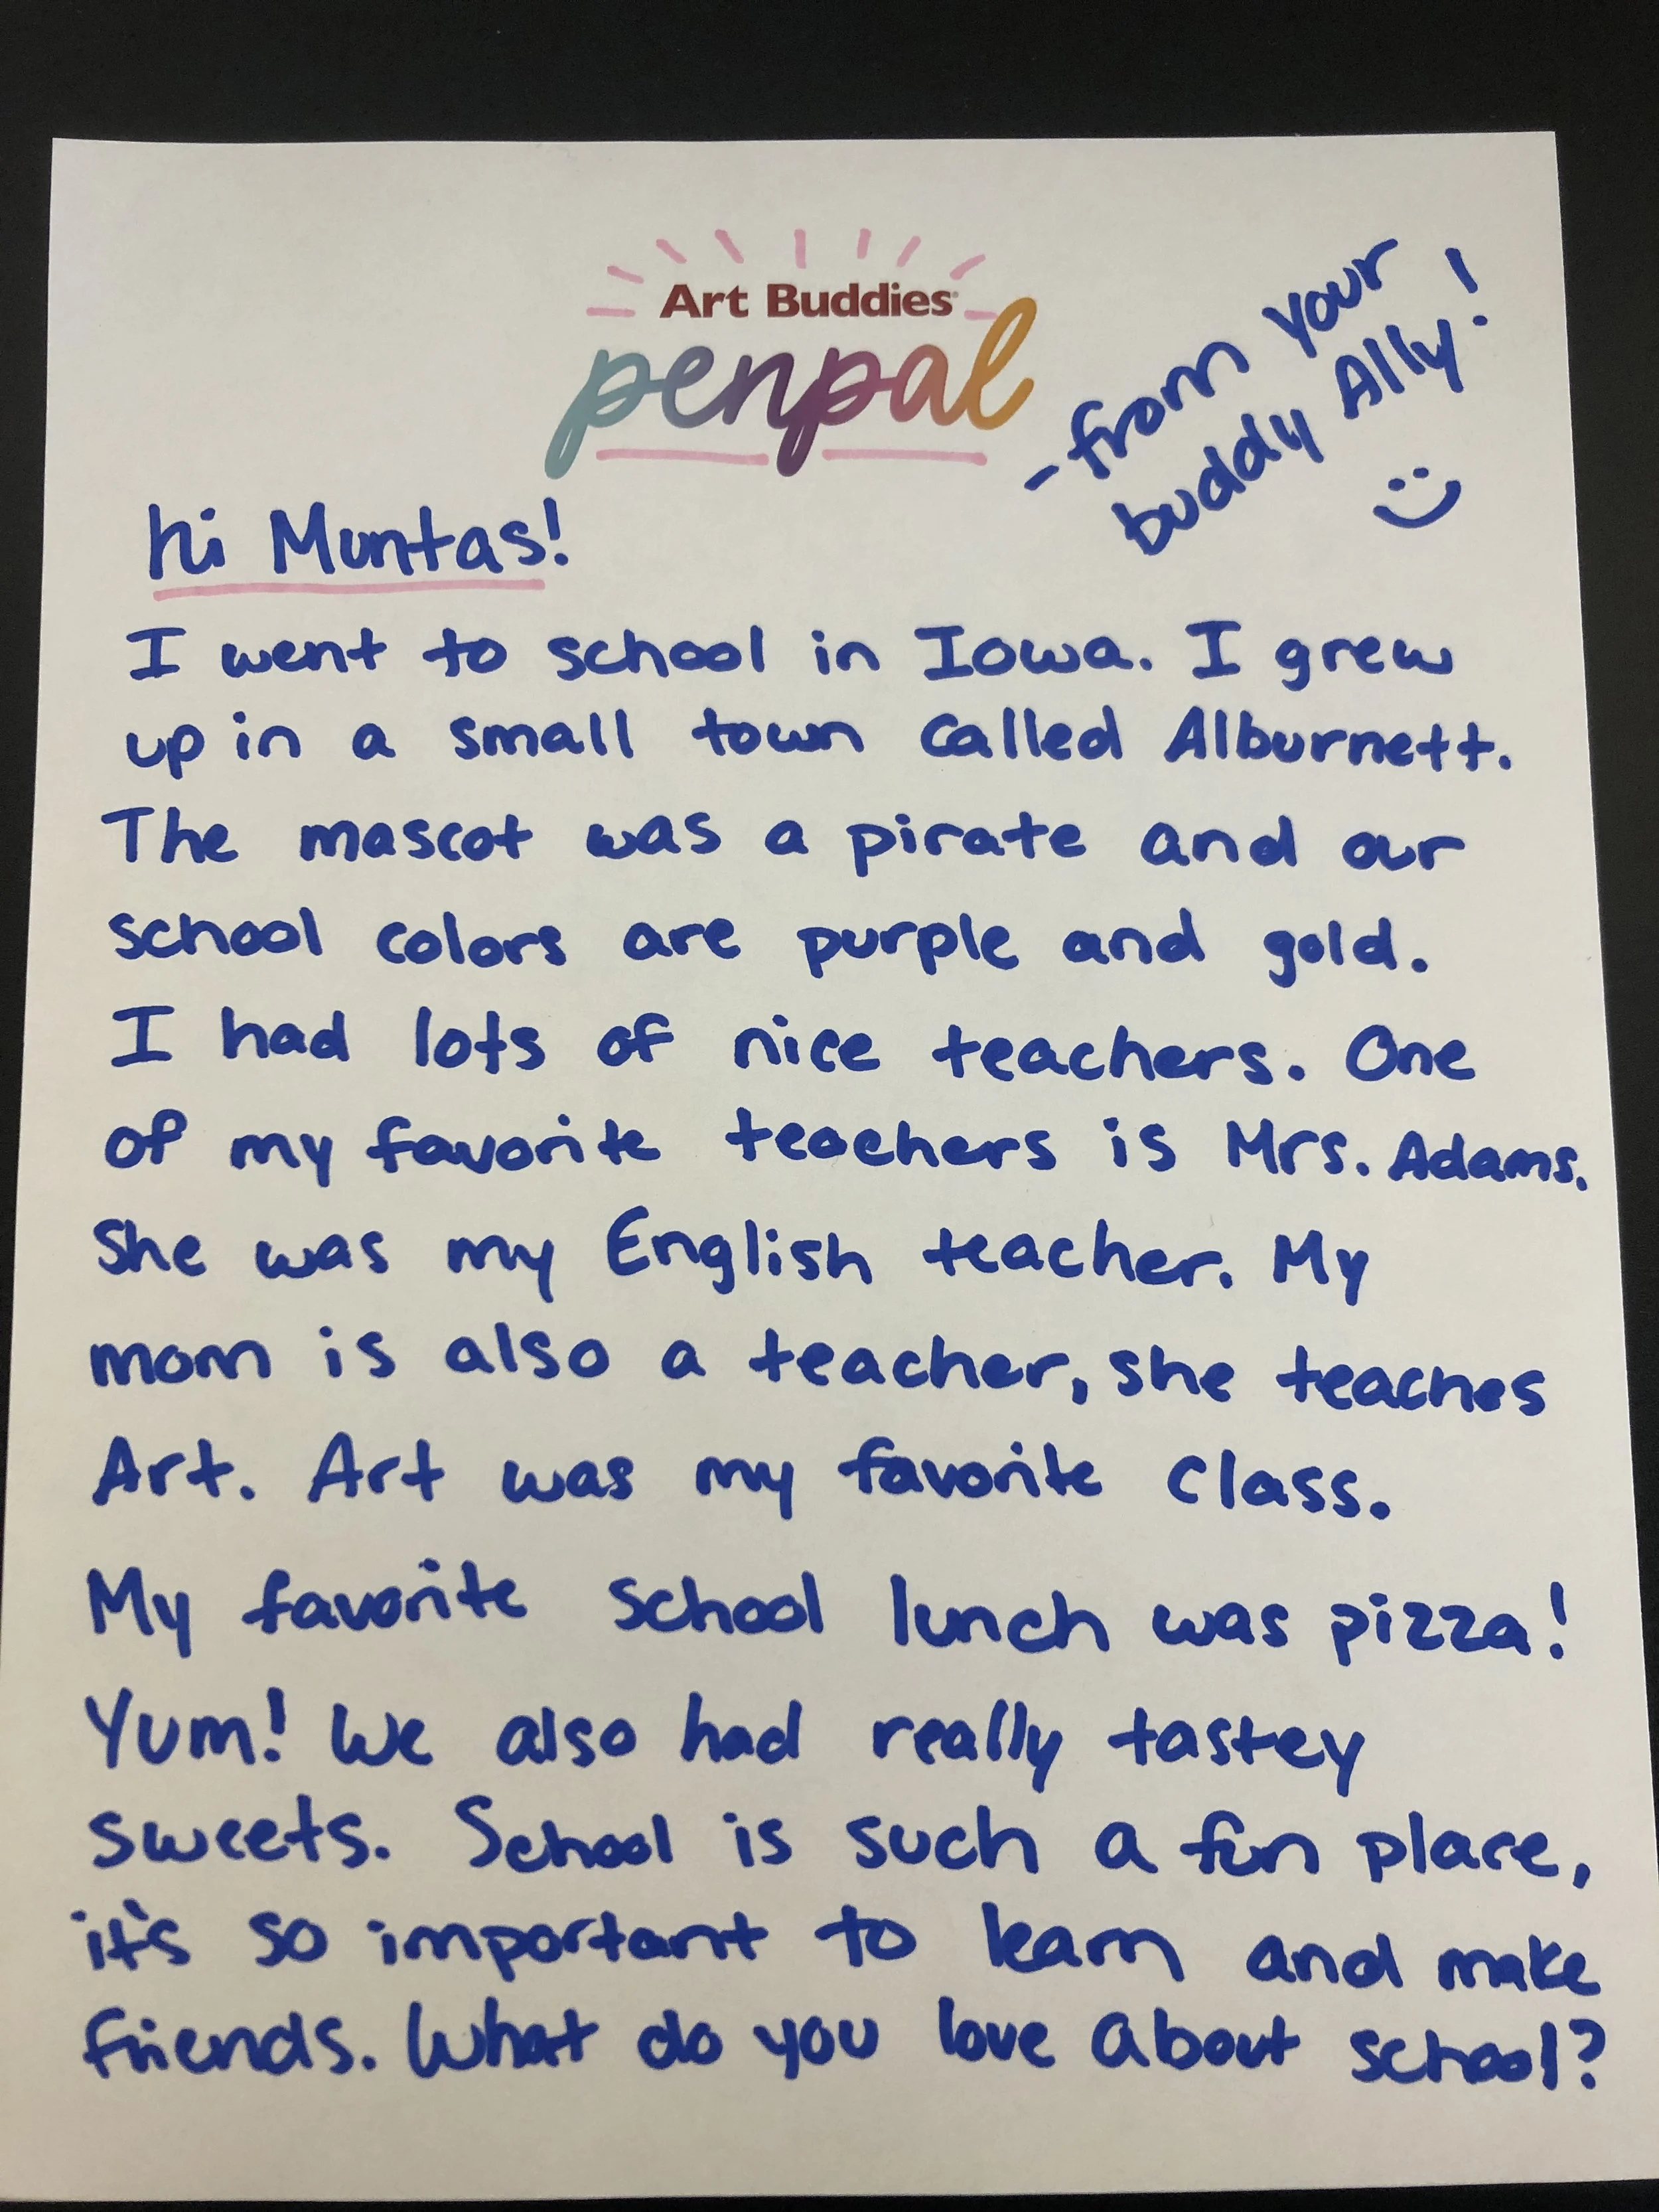 Art Buddies
penpal
- from your
buddy Ally!
hi Muntas!
I went to school in Iowa. I grew
up in a small town called Alburnett.
The mascot was a pirate and our
school colors are purple and gold.
I had lots of nice teachers. One
of my favorite teachers is Mrs. Adams.
She was my English teacher. My
mom is also a teacher, she teaches
Art. Art was my favorite class.
My favorite school lunch was pizza!
Yum! We also had really tastey
sweets. School is such a fun place,
it's so important to learn and make
friends. What do you love about school?